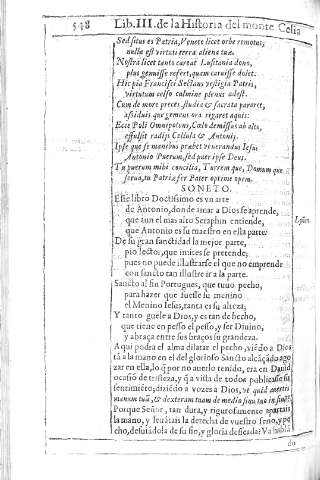 548 Lib.III. de la Historia del monte Celia
Sed situs es Patria, Venete licet orbe remotus,
nulla est virtuti terra aliena tuæ.
Nostra licet tanto careat Lusitania dono,
plus genuisse refert, quam caruisse dolet.
Hic pia Francisci Sectans vestigia Patris,
virtutum celso culmine plenus adest.
Cum de more preces, studia & sacrata pararet,
assiduis que gemens ora rigaret aquis:
Ecce Poli Omnipotens, Cœlo demissus ab alto,
effulsit radijs Cellula & Antonij.
Ipse que se manibus præbet venerandus Iesus
Antonio Puerum, sed puer ipse Deus.
Tu puerum mihi concilia, Turrem que, Domum que
serua, tu Patriæ ser Pater optime opem.
SONETO.
Este libro Doctissimo es vn arte
de Antonio, donde amar a Dios se aprende,
que aun el mas alto Seraphin entiende,
que Antonio es su maestro en ella parte.
De su gran sanctidad la mejor parte,
pio lector, que imites se pretende;
pues no puede illustrarse el que no emprende
con sancto tan illustre ir a la parte.
Sancto al fin Portugues, que tuuo pecho,
para hazer que fuesse su menino
el Menino Iesus, tanta es su alteza;
Y tanto guele a Dios, y es tan de hecho,
que tiene en pesso el pesso, y ser Diuino,
y abraça entre sus braços su grandeza.
Aqui podra el alma dilatar el pecho, viẽdo a Dios
tã a la mano en el del glorioso Sancto alcãçãdo ago
zar en ella, lo q̃ por no auerlo tenido, era en Dauid
ocasiõ de tristeza, y q̃ a vista de todos publicasse su
sentimiẽto; diziẽdo a vozes a Dios, vt quid auertis
manum tuã, & dexteram tuam de medio sinu tuo in finẽ?
Porque Señor, tan dura, y rigurosamente apartais
la mano, y leuãtais la derecha de vuestro seno, y pe
cho, desuiãdola de su fin, y gloria desseada?